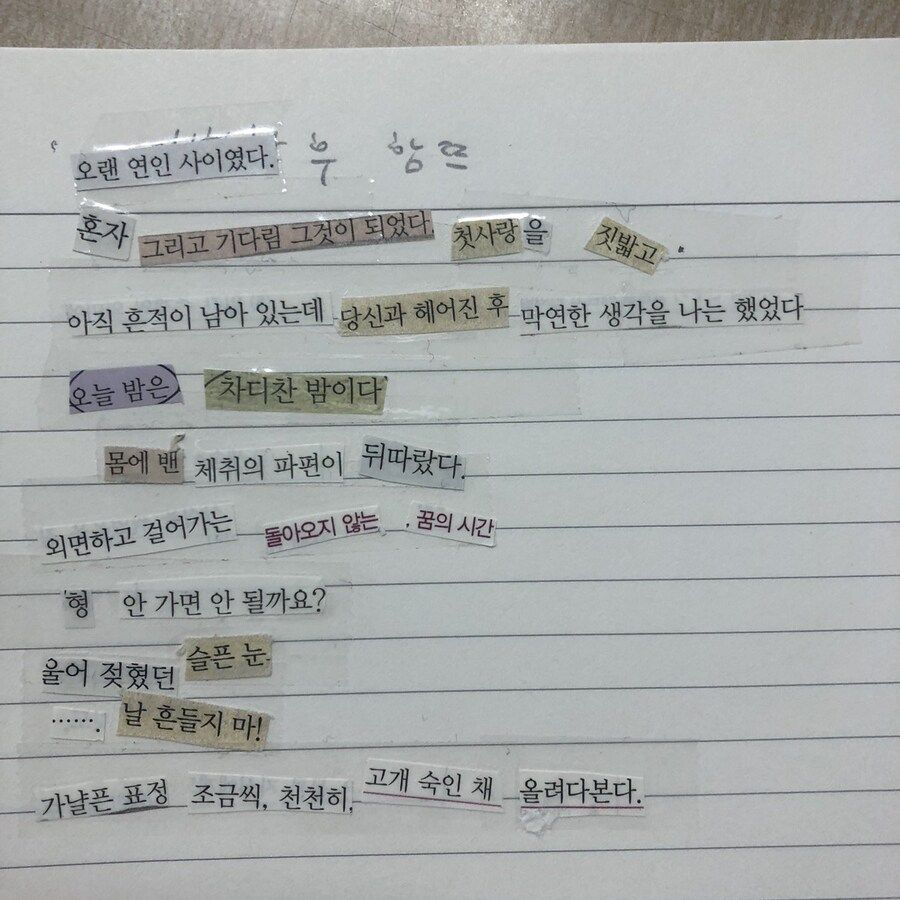 오랜 연인 사이였다.
혼자 그리고 기다림 그것이 되었다 첫사랑을 짓밟고.
아직 흔적이 남아 있는데 당신과 헤어진 후 막연한 생각을 나는 했었다
오늘 밤은 차디찬 밤이다
몸에 밴 체취의 파편이 뒤따랐다.
외면하고 걸어가는 돌아오지 않는 . 꿈의 시간
형 안 가면 안 될까요?
울어 젖혔던 슬픈 눈
……. 날 흔들지 마!
가냘픈 표정 조금씩, 천천히, 고개 숙인 채 올려다본다.